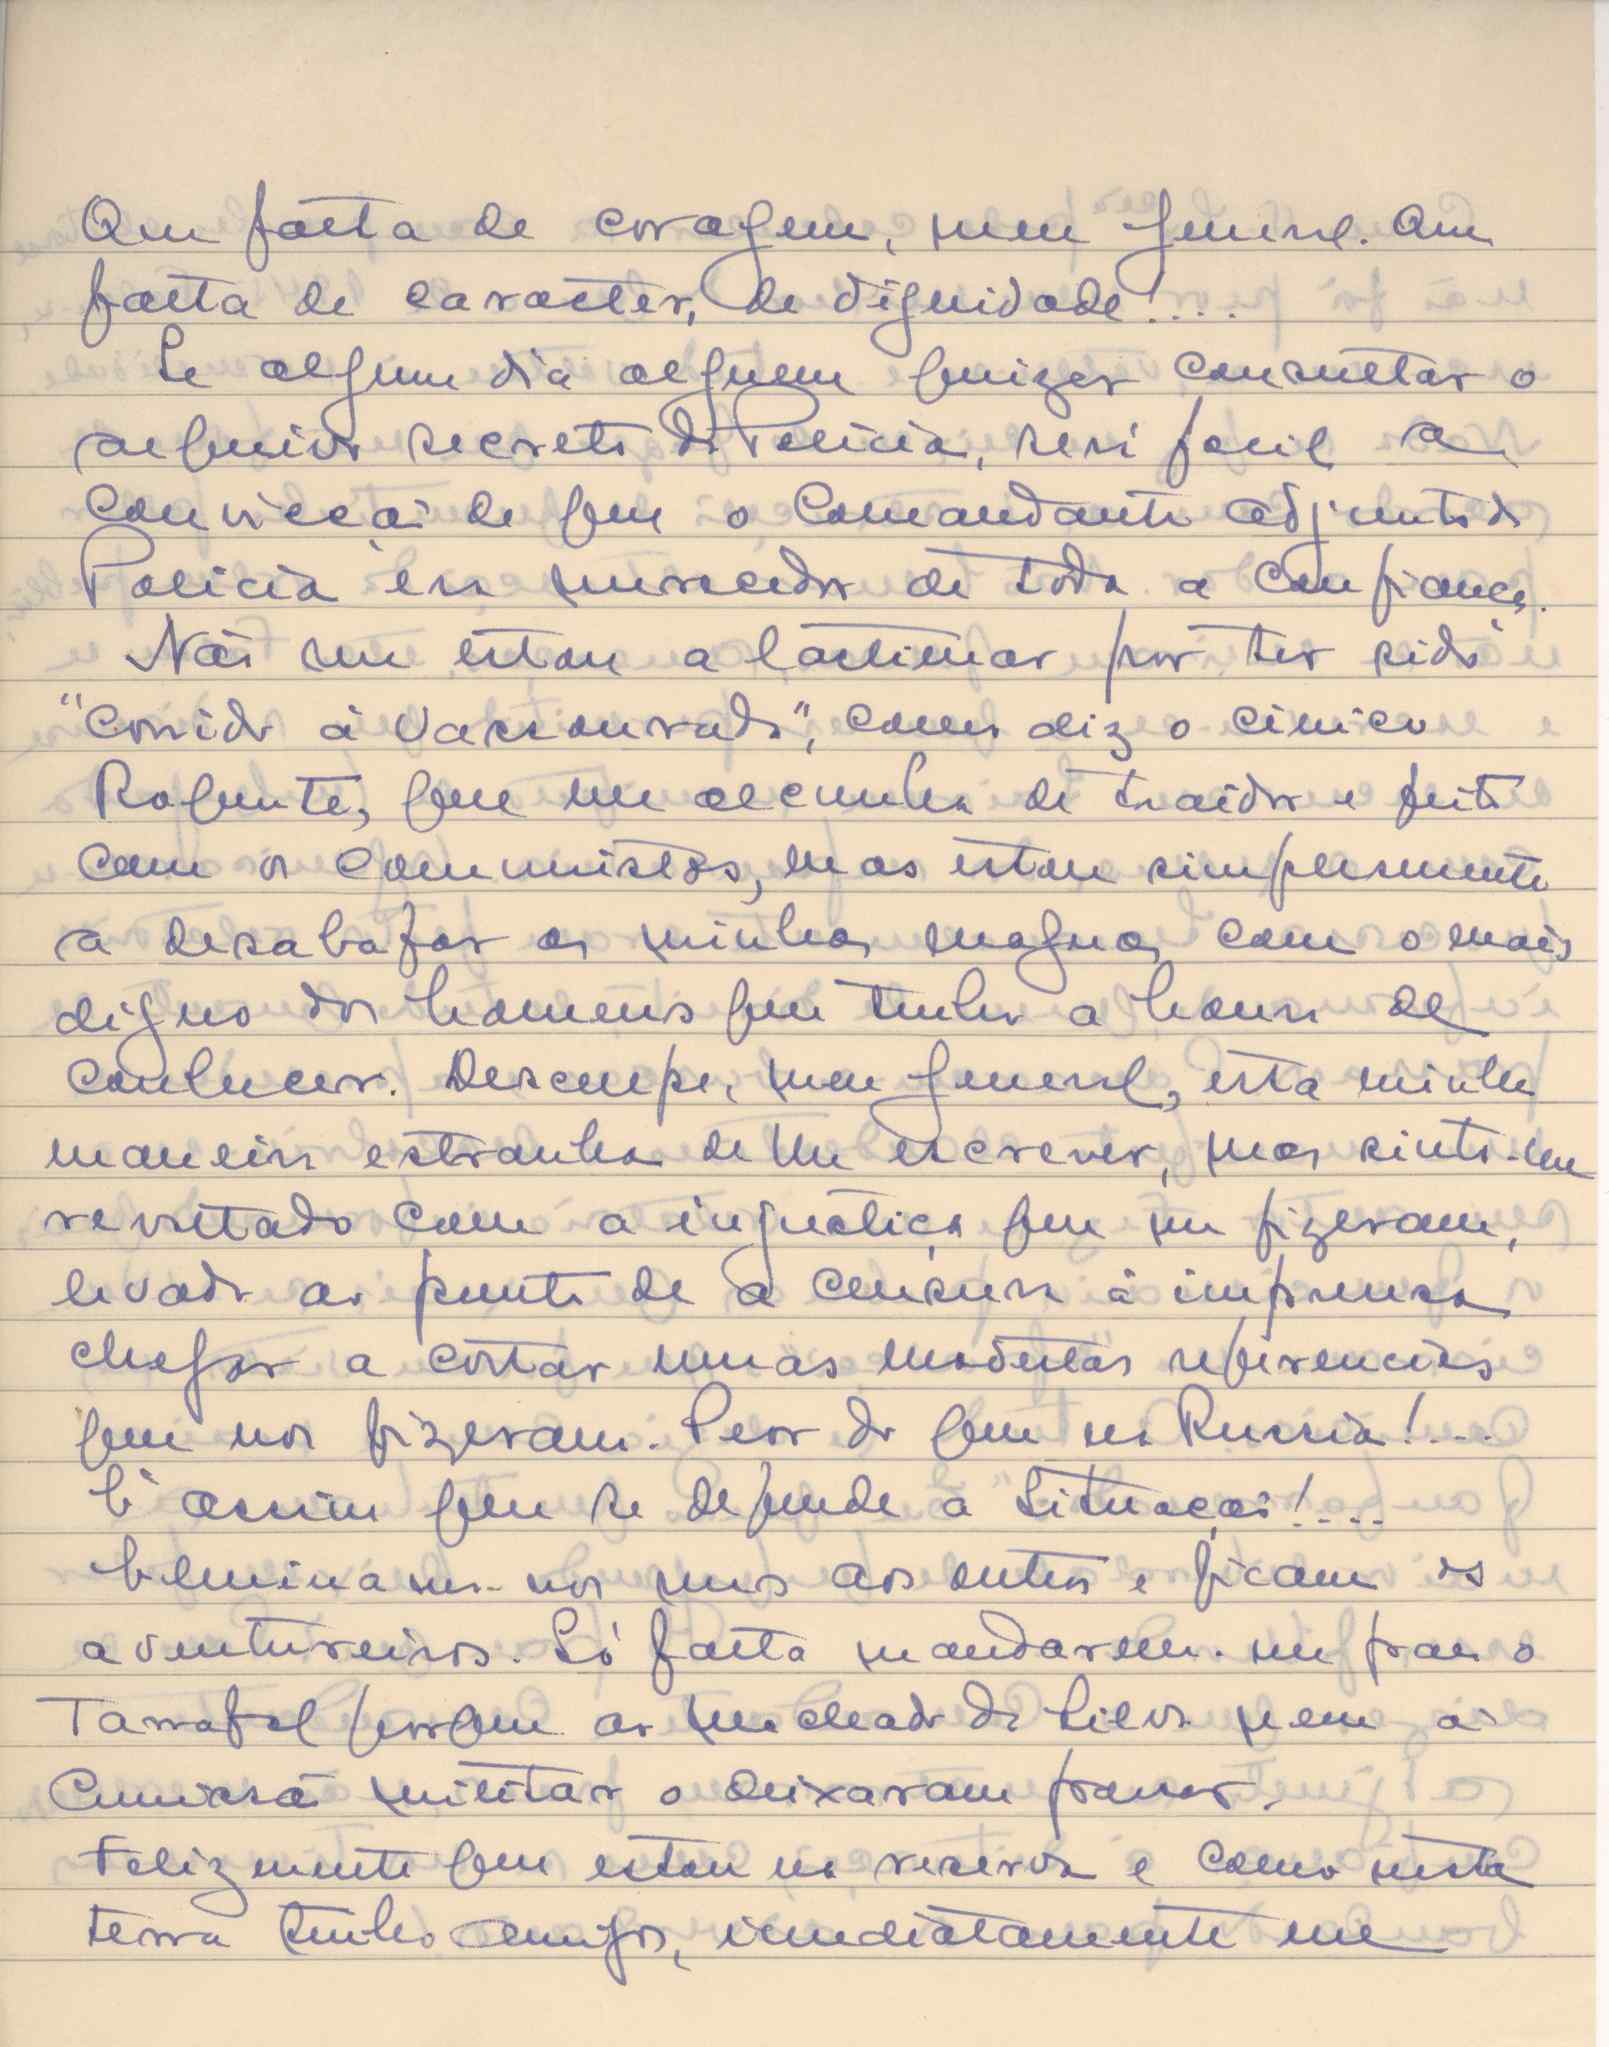 Que falta de coragem, meu general. Que
falta de caracter, de dignidade!....
Se algum dia alguem quizer consultar o
arquivo secreto da Policia, será facil a
convicção de que o Comandante adjunto da
Policia era merecedor de toda a confiança.
Não me estou a lastimar por ter sido
"corrido à vassourada", como diz o cinico
que me alcunha de traidor e feito
com os comunistas, mas estou simplesmente
a desabafar as minhas magnas com o mais
digno dos homens que tenho a honra de
conhecer. Desculpe, meu general, esta minha
maneira estranha de lhe escrever, mas sinto-me
revoltado com a injustiça que me fizeram,
levada ao ponto de a censura à imprensa
chegar a cortar umas modestas referencias
que nos fizeram. Peor do que na Russia!...
É assim que se defende a Situação!....
Eliminamo-nos uns aos outros e ficam os
aventureiros. Só falta mandarem-me para o
Tarrafal porque ao Machado da Silva nem a
Comissão militar o deixaram passar.
Felizmente que estou na reserva e como nesta
terra tenho amigos, imediatamente me